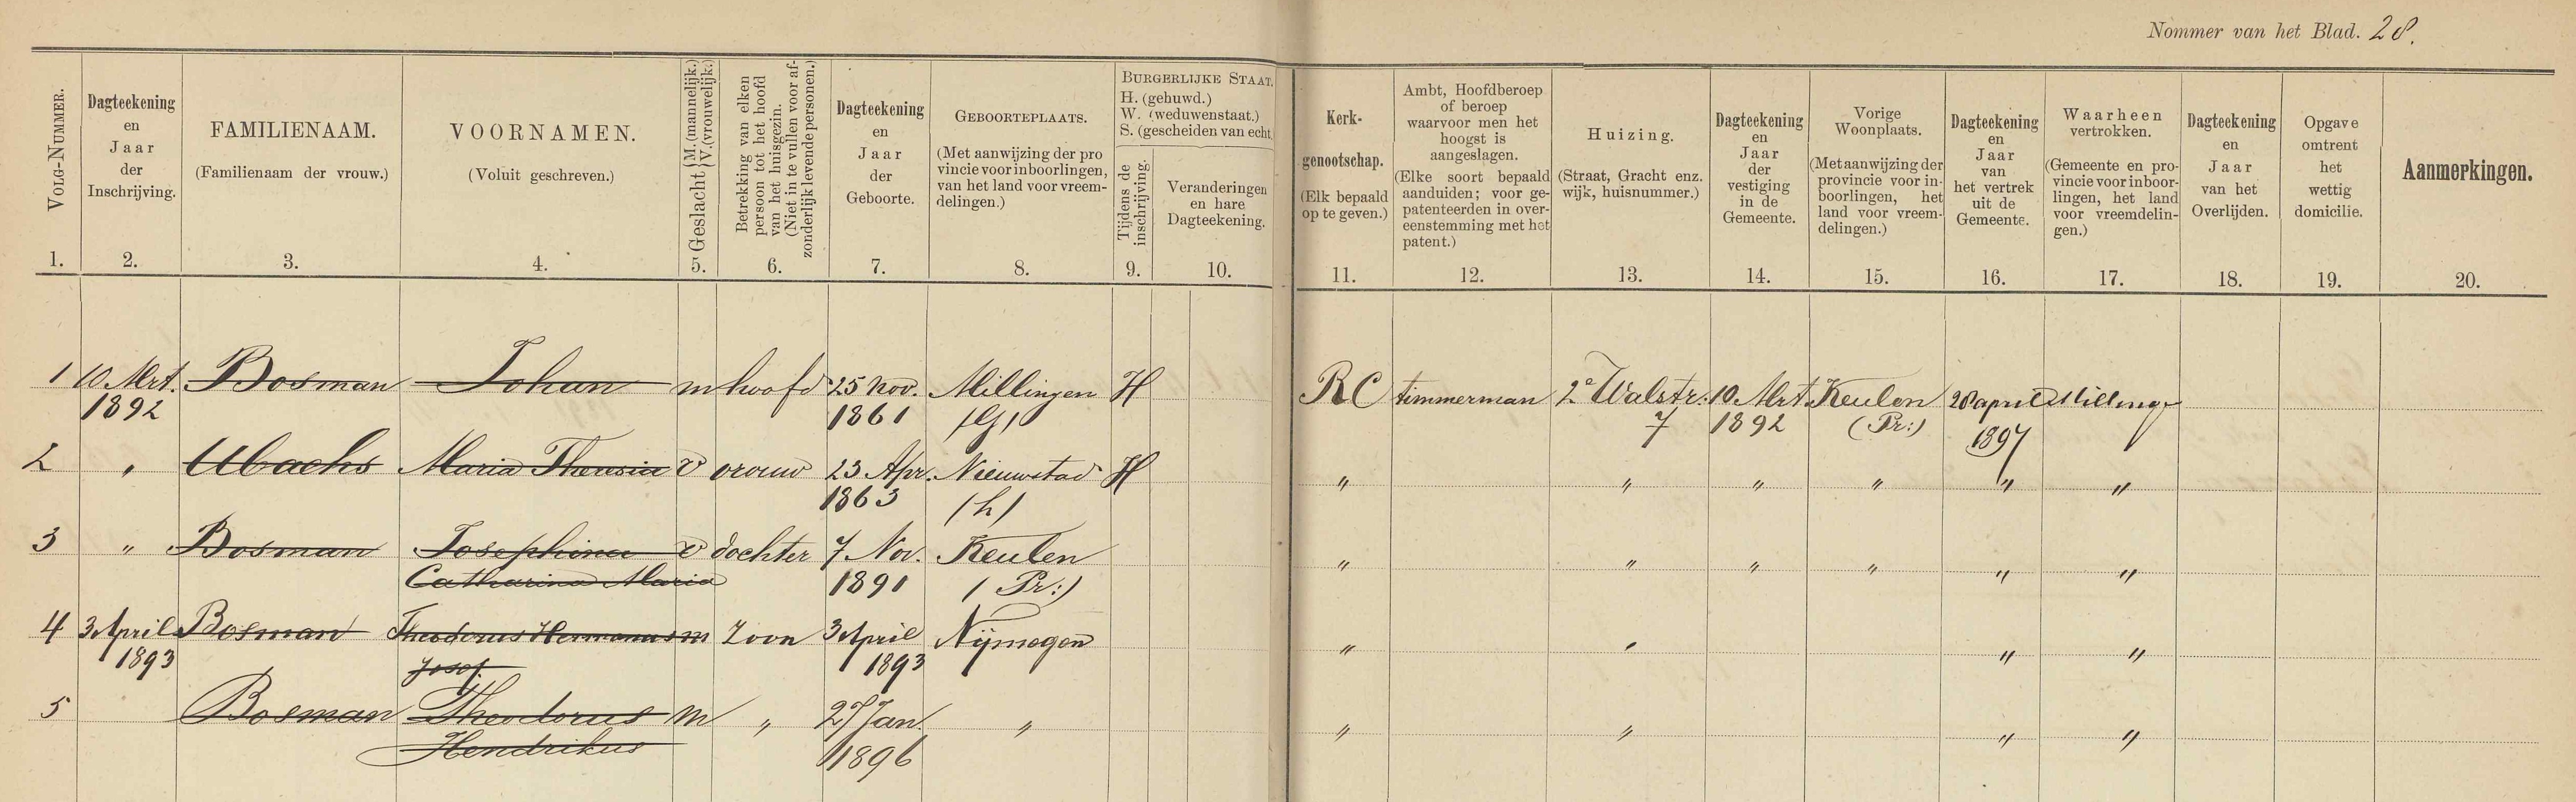 Nommer van het Blad. 28.
VOLG-NUMMER.
1.
Dagteekening
en
Jaar
der
Inschrijving.
2.
FAMILIENAAM.
(Familienaam der vrouw.)
3.
VOORNAMEN.
(Voluit geschreven.)
4.
Geslacht { M. (mannelijk.)
V. (vrouwelijk.)
5.
Betrekking van elken
persoon tot het hoofd
van het huisgezin.
(Niet in te vullen voor af-
zonderlijk levende personen.)
6.
Dagteekening
en
Jaar
der
Geboorte.
7.
GEBOORTEPLAATS.
(Met aanwijzing der pro
vincie voor inboorlingen,
van het land voor vreem-
delingen.)
8.
BURGERLIJKE STAAT.
H. (gehuwd.)
W. (weduwenstaat.)
S. (gescheiden van echt.)
Tijdens de
inschrijving.
9.
Veranderingen
en hare
Dagteekening.
10.
Kerk-
genootschap.
(Elk bepaald
op te geven.)
11.
Ambt, Hoofdberoep
of beroep
waarvoor men het
hoogst is
aangeslagen.
(Elke soort bepaald
aanduiden; voor ge-
patenteerden in over-
eenstemming met het
patent.)
12.
Huizing.
(Straat, Gracht enz.
wijk, huisnummer.)
13.
Dagteekening
en
Jaar
der
vestiging
in de
Gemeente.
14.
Vorige
Woonplaats.
(Met aanwijzing der
provincie voor in-
boorlingen, het
land voor vreem-
delingen.)
15.
Dagteekening
en
Jaar
van
het vertrek
uit de
Gemeente.
16.
Waarheen
vertrokken.
(Gemeente en pro-
vincie voor inboor-
lingen, het land
voor vreemdelin-
gen.)
17.
Dagteekening
en
Jaar
van het
Overlijden.
18.
Opgave
omtrent
het
wettig
domicilie.
19.
Aanmerkingen.
20.
1 10 Mrt. Bosman Johan m hoofd 25 Nov. Millingen H RC timmerman 2e Walstr. 10 Mrt. Keulen 28 april Millinge
1892 1861 (G) 7 1892 (Pr:) 1897
2 " Ubachs Maria Theresia v vrouw 23 Apr. Nieuwstad H " " " " " "
1863 (L)
3 " Bosman Josephina v dochter 7 Nov. Keulen " " " " " "
Catharina Maria 1891 (Pr:)
4 3 April Bosman Theodorus Hermanus m zoon 3 April Nijmegen " " " "
1893 Josef. 1893
5 Bosman Theodorus m " 27 Jan. " " " " "
Hendrikus 1896